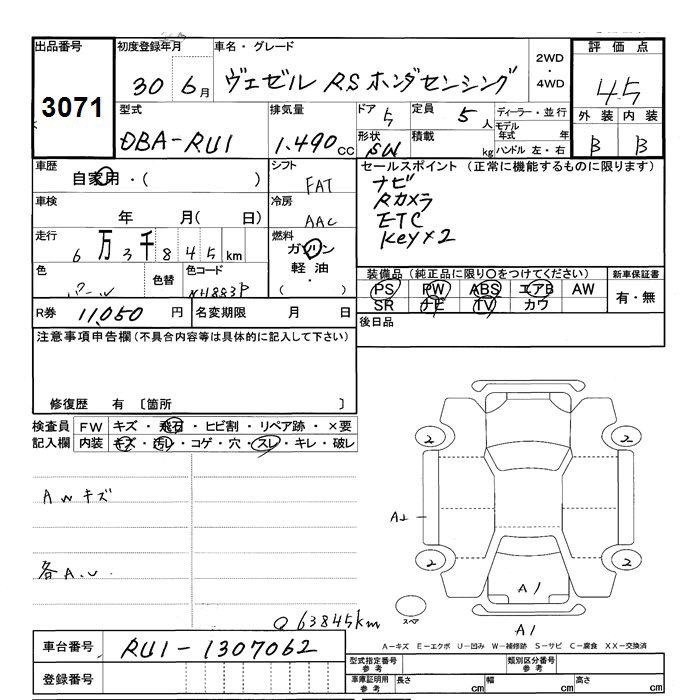 出品番号 初度登録年月 車名・グレード 2WD・4WD 評価点
3071 30 6月 ヴェゼル RS ホンダセンシング 4.5
型式 排気量 ドア 5 定員 5人 ディーラー・並行 外装 内装
DBA-RU1 1.490cc 形状 SW 積載 kg モデル年式 年 ハンドル 左・右 B B
車歴 シフト セールスポイント(正常に機能するものに限ります)
自家用・( ) FAT ナビ
車検 冷房 Rカメラ
年 月( 日) AAC ETC
走行 燃料 Key×2
6万3千845km ガソリン
色 色替 色コード 軽油 装備品(純正品に限り○をつけてください) 新車保証書
NH883P ( ) PS PW ABS エアB AW 有・無
SR ナビ TV カワ
R券 11,050円 名変期限 月 日 後日品
注意事項申告欄(不具合内容等は具体的に記入して下さい)
修復歴 有 〔箇所 〕
検査員 FW キズ・飛石・ヒビ割・リペア跡・×要
記入欄 内装 キズ・汚レ・コゲ・穴・スレ・キレ・破レ
2 2
AWキズ
A2
各A.U.
2 2
A1
Q 63845km スペア
A1
A-キズ E-エクボ U-凹み W-補修跡 S-サビ C-腐食 XX-交換済
車台番号 RU1-1307062
型式指定番号 参考 類別区分番号 参考
登録番号 車庫証明用 参考 長さ cm 幅 cm 高さ cm